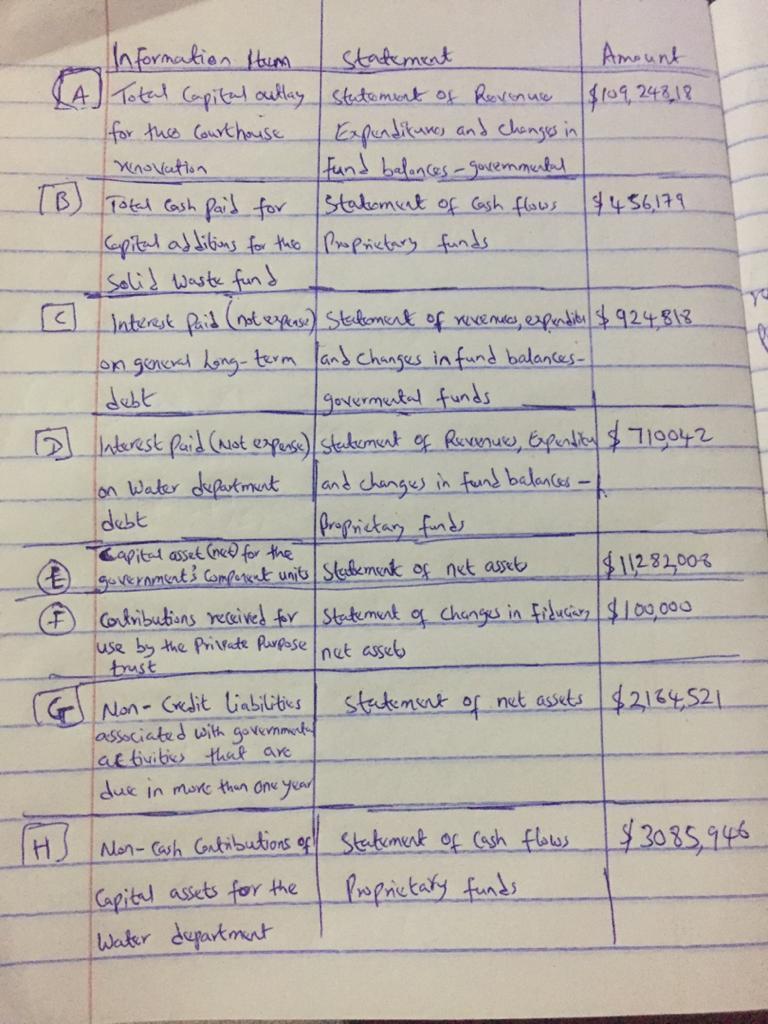 Information Item Statement Amount
A Total Capital outlay Statement of Revenue $109,248,18
for the Courthouse Expenditures and changes in
renovation fund balances - governmental
B Total Cash Paid for Statement of Cash flows $456,179
Capital additions for the Proprietary funds
Solid Waste fund
C Interest Paid (not expense) Statement of revenues, expenditu $924,818
on general long-term and changes in fund balances-
debt govermental funds
D Interest Paid (Not expense) Statement of Revenues, Expenditu $710,042
on Water department and changes in fund balances -
debt Proprietary funds
E Capital asset (net) for the
government's component units Statement of net asset $11,282,008
F Contributions received for Statement of changes in fiduciary $100,000
use by the Private Purpose net assets
trust
G Non-Credit liabilities Statement of net assets $2,164,521
associated with governmental
activities that are
due in more than one year
H Non-Cash Contributions of Statement of Cash flows $3085,946
Capital assets for the Proprietary funds
Water department